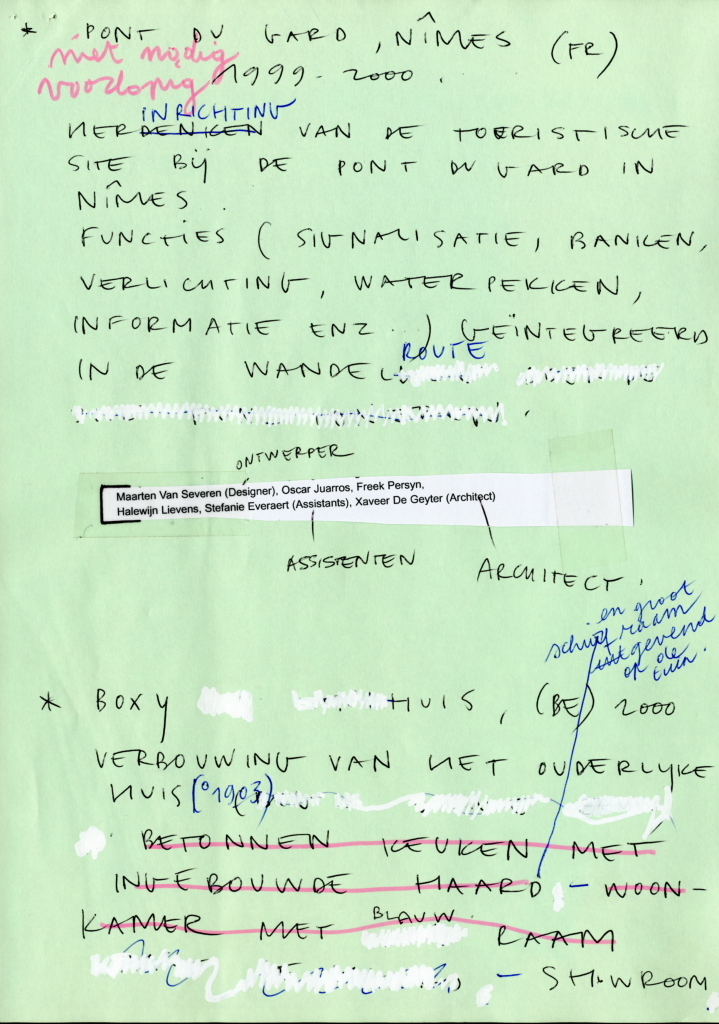 * PONT DU GARD, NÎMES (FR)
niet nodig
voorlopig
1999-2000.
INRICHTING
HERDENKEN VAN DE TOERISTISCHE
SITE BIJ DE PONT DU GARD IN
NÎMES.
FUNCTIES (SIGNALISATIE, BANKEN,
VERLICHTING, WATERPEKKEN,
INFORMATIE ENZ...) GEÏNTEGREERD
ROUTE
IN DE WANDEL
ONTWERPER
Maarten Van Severen (Designer), Oscar Juarros, Freek Persyn,
Halewijn Lievens, Stefanie Everaert (Assistants), Xaveer De Geyter (Architect)
ASSISTENTEN
ARCHITECT.
en groot
schuifraam
uitgevend
op de
tuin.
* BOXY HUIS, (BE) 2000
VERBOUWING VAN HET OUDERLIJKE
HUIS (°1903)
BETONNEN KEUKEN MET
INGEBOUWDE HAARD - WOON-
BLAUW
KAMER MET RAAM
- SHOWROOM